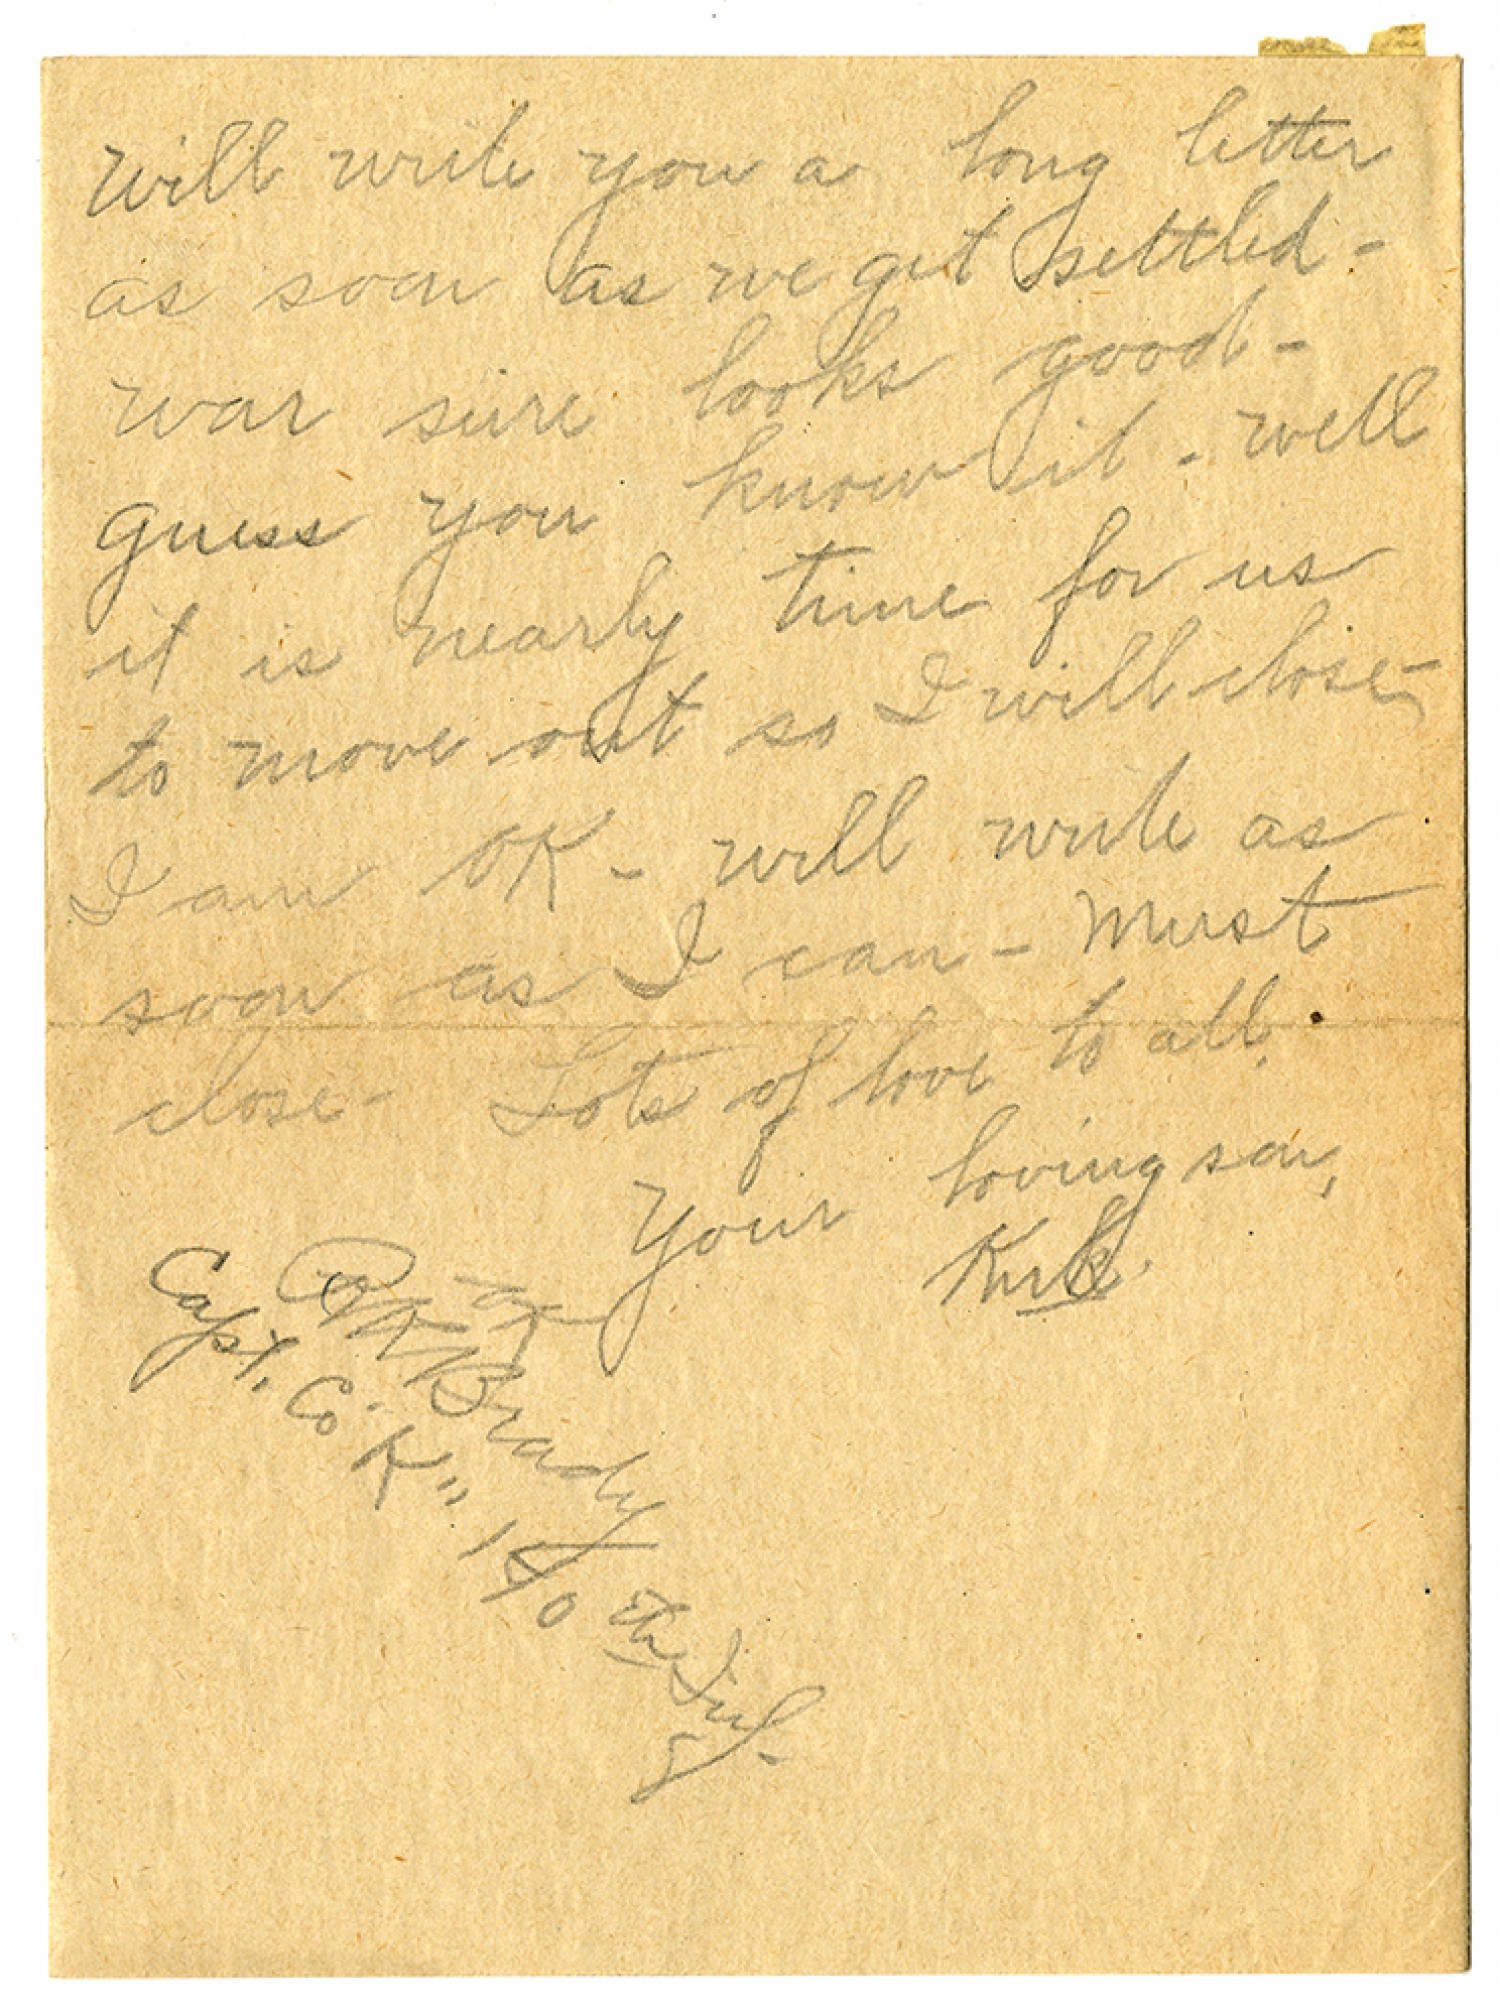 Will write you a long letter
as soon as we get settled -
war sure looks good -
guess you know it - well
it is nearly time for us
to move out so I will close -
I am OK - will write as
soon as I can - Must
close - Lots of love to all.
Your loving son,
Kirk.
OK
Brady
Capt. Co. K", 140th Inf.